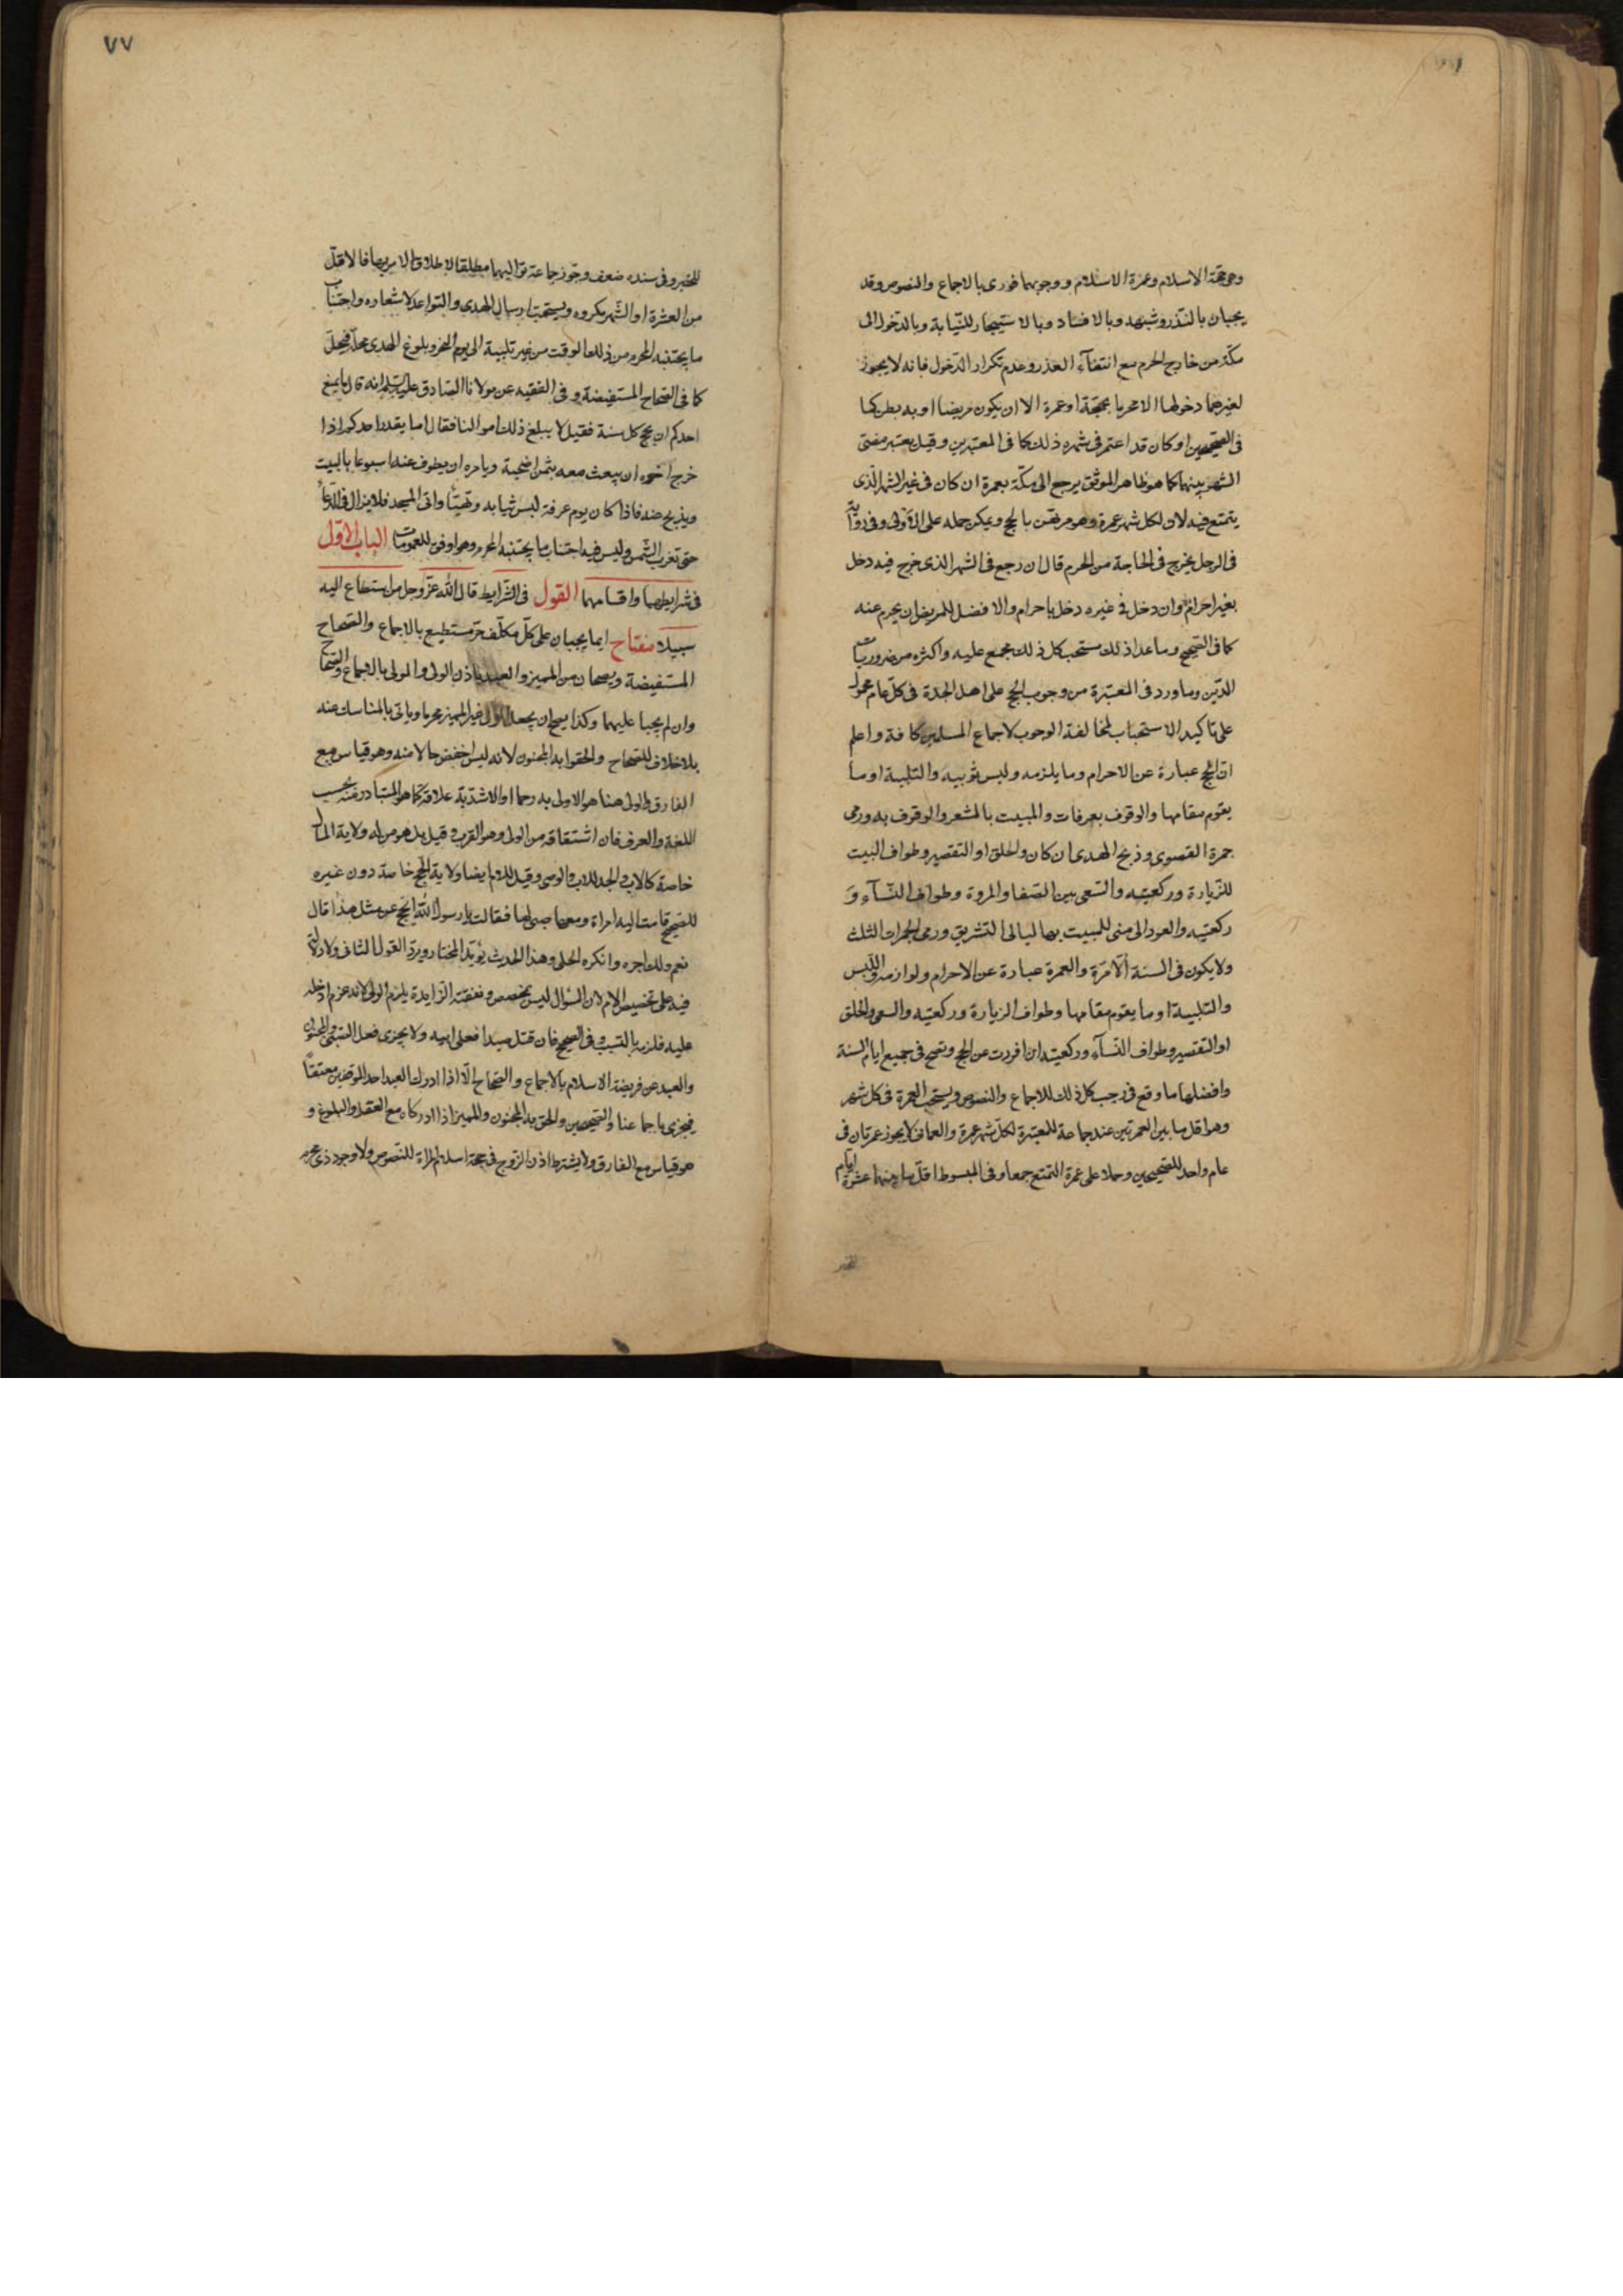 وهو حجّة الاسلام وعمرة الاسلام ووجوبهما فورى بالاجماع والنصوص وقد
يجبان بالنذر وشبهه وبالافساد وبالاستيجار للنيابة وبالدخول الى
مكّة من خارج الحرم مع انتفآء العذر وعدم تكرار الدّخول فانه لا يجوز
لغيرهما دخولها الا محرما بحجّة او عمرة الا ان يكون مريضا او به بطن كما
فى الصّحيحين او كان قد اعتمر فى شهره ذلك كما فى المعتبرين وقيل يعتبر مضىّ
الشهر بينهما كما هو ظاهر الموثق يرجع الى مكّة بعمرة ان كان فى غير الشهر الّذى
يتمتع فيه لان لكل شهر عمرة وهو مرتهن بالحج ويمكن حمله على الاولى وفى رواية
فى الرجل يخرج فى الحاجة من الحرم قال ان رجع فى الشهر الذى خرج فيه دخل
بغير احرام وان دخل فى غيره دخل باحرام والافضل للمريض ان يحرم عنه
كما فى الصّحيح وما عدا ذلك مستحب كل ذلك مجمع عليه واكثره من ضروريات
الدّين وما ورد فى المعتبرة من وجوب الحج على اهل الجدة فى كلّ عام محمول
على تاكيد الاستحباب لمخالفة الوجوب لاجماع المسلمين كافة واعلم
انّ الحج عبارة عن الاحرام وما يلزمه ولبس ثوبيه والتلبية او ما
يقوم مقامها والوقوف بعرفات والمبيت بالمشعر والوقوف به ورمى
جمرة القصوى وذبح الهدى ان كان والحلق او التقصير وطواف البيت
للزيارة وركعتيه والسّعى بين الصّفا والمروة وطواف النّسآء وَ
ركعتيه والعود الى منى للمبيت بها ليالى التشريق ورمى الجمرات الثلث
ولا يكون فى السنة الّا مرّة والعمرة عبارة عن الاحرام ولوازمه واللّبس
والتلبية او ما يقوم مقامها وطواف الزيارة وركعتيه والسعى والحلق
او التقصير وطواف النّسآء وركعتيه ان افردت عن الحج وتصح فى جميع ايام السنة
وافضلها ما وقع فى رجب كل ذلك للاجماع والنصوص ويستحب العمرة فى كل شهر
وهو اقل ما بين العمرتين عند جماعة للمعتبرة لكلّ شهر عمرة والعمانى لا يجوز عمرتان فى
عام واحد للصّحيحين وحملا على عمرة التمتع جمعا وفى المبسوط اقلّ ما بينهما عشرة ايّام
للخبر وفى سنده ضعف وجوّز جماعة تواليهما مطلقا لاطلاق الامر بها فالاقلّ
من العشرة او الشّهر مكروه ويستحب ارسال الهدى والتواعد لاشعاره واجتناب
ما يجتنبه المحرم من ذلك الوقت من غير تلبية الى يوم النحر وبلوغ الهدى محلّه فيحلّ
كما فى الصّحاح المستفيضة وفى الفقيه عن مولانا الصادق عليه السّلام انه قال ما يمنع
احدكم ان يحج كل سنة فقيل لا يبلغ ذلك اموالنا فقال اما يقدر احدكم اذا
خرج اخوه ان يبعث معه بثمن اضحية ويامره ان يطوف عنه اسبوعا بالبيت
ويذبح عنه فاذا كان يوم عرفة لبس ثيابه وتهيّأ واتى المسجد فلا يزال فى الدّعآ
حتى تغرب الشّمس وليس فيه اجتناب ما يجتنبه المحرم وهو اوفق للعمومات الباب الاوّل
فى شرايطهما واقسامهما القول فى الشّرايط قال اللّه عزّ وجل من استطاع اليه
سبيلا مفتاح انما يجبان على كلّ مكلّف حرّ مستطيع بالاجماع والصّحاح
المستفيضة ويصحان من المميز والعبد باذن الولى والمولى بالاجماع والصّحاح
وان لم يجبا عليهما وكذا يصح ان يجعل الولى غير المميز محرما وياتى بالمناسك عنه
بلا خلاف للصّحاح والحقوا به المجنون لانه ليس اخفض حالا منه وهو قياس مع
الفارق والولى هنا هو الاولى به رحما والاشدّ به علاقة كما هو المتبادر منه بحسب
اللغة والعرف فان اشتقاقه من الولى وهو القرب وقيل بل هو من له ولاية المال
خاصة كالاب والجد للاب والوصى وقيل للام ايضا ولاية الحج خاصة دون غيره
للصّحيح قامت اليه امراة ومعها صبى لها فقالت يا رسول اللّه ايحج عن مثل هذا قال
نعم ولك اجره وانكره الحلى وهذا الحديث يؤيّد المختار ويردّ القول الثانى ولا دلالة
فيه على تخصيص الام لان السّؤال ليس بمخصص ونفقته الزايدة يلزم الولى لانه غرم ادخله
عليه فلزمه بالتسبيب وفى الصحيح فان قتل صيدا فعلى ابيه ولا يجزى فعل الصّبى والمجنون
والعبد عن فريضة الاسلام بالاجماع والصّحاح الّا اذا ادرك العبد احد الموقفين معتقًا
فيجزى باجماعنا والصّحيحين والحق به المجنون والمميز اذا ادركاه مع العقل والبلوغ و
هو قياس مع الفارق ولا يشترط اذن الزّوج فى حجة اسلام المراة للنّصوص ولا وجود ذى محرم
٧٧